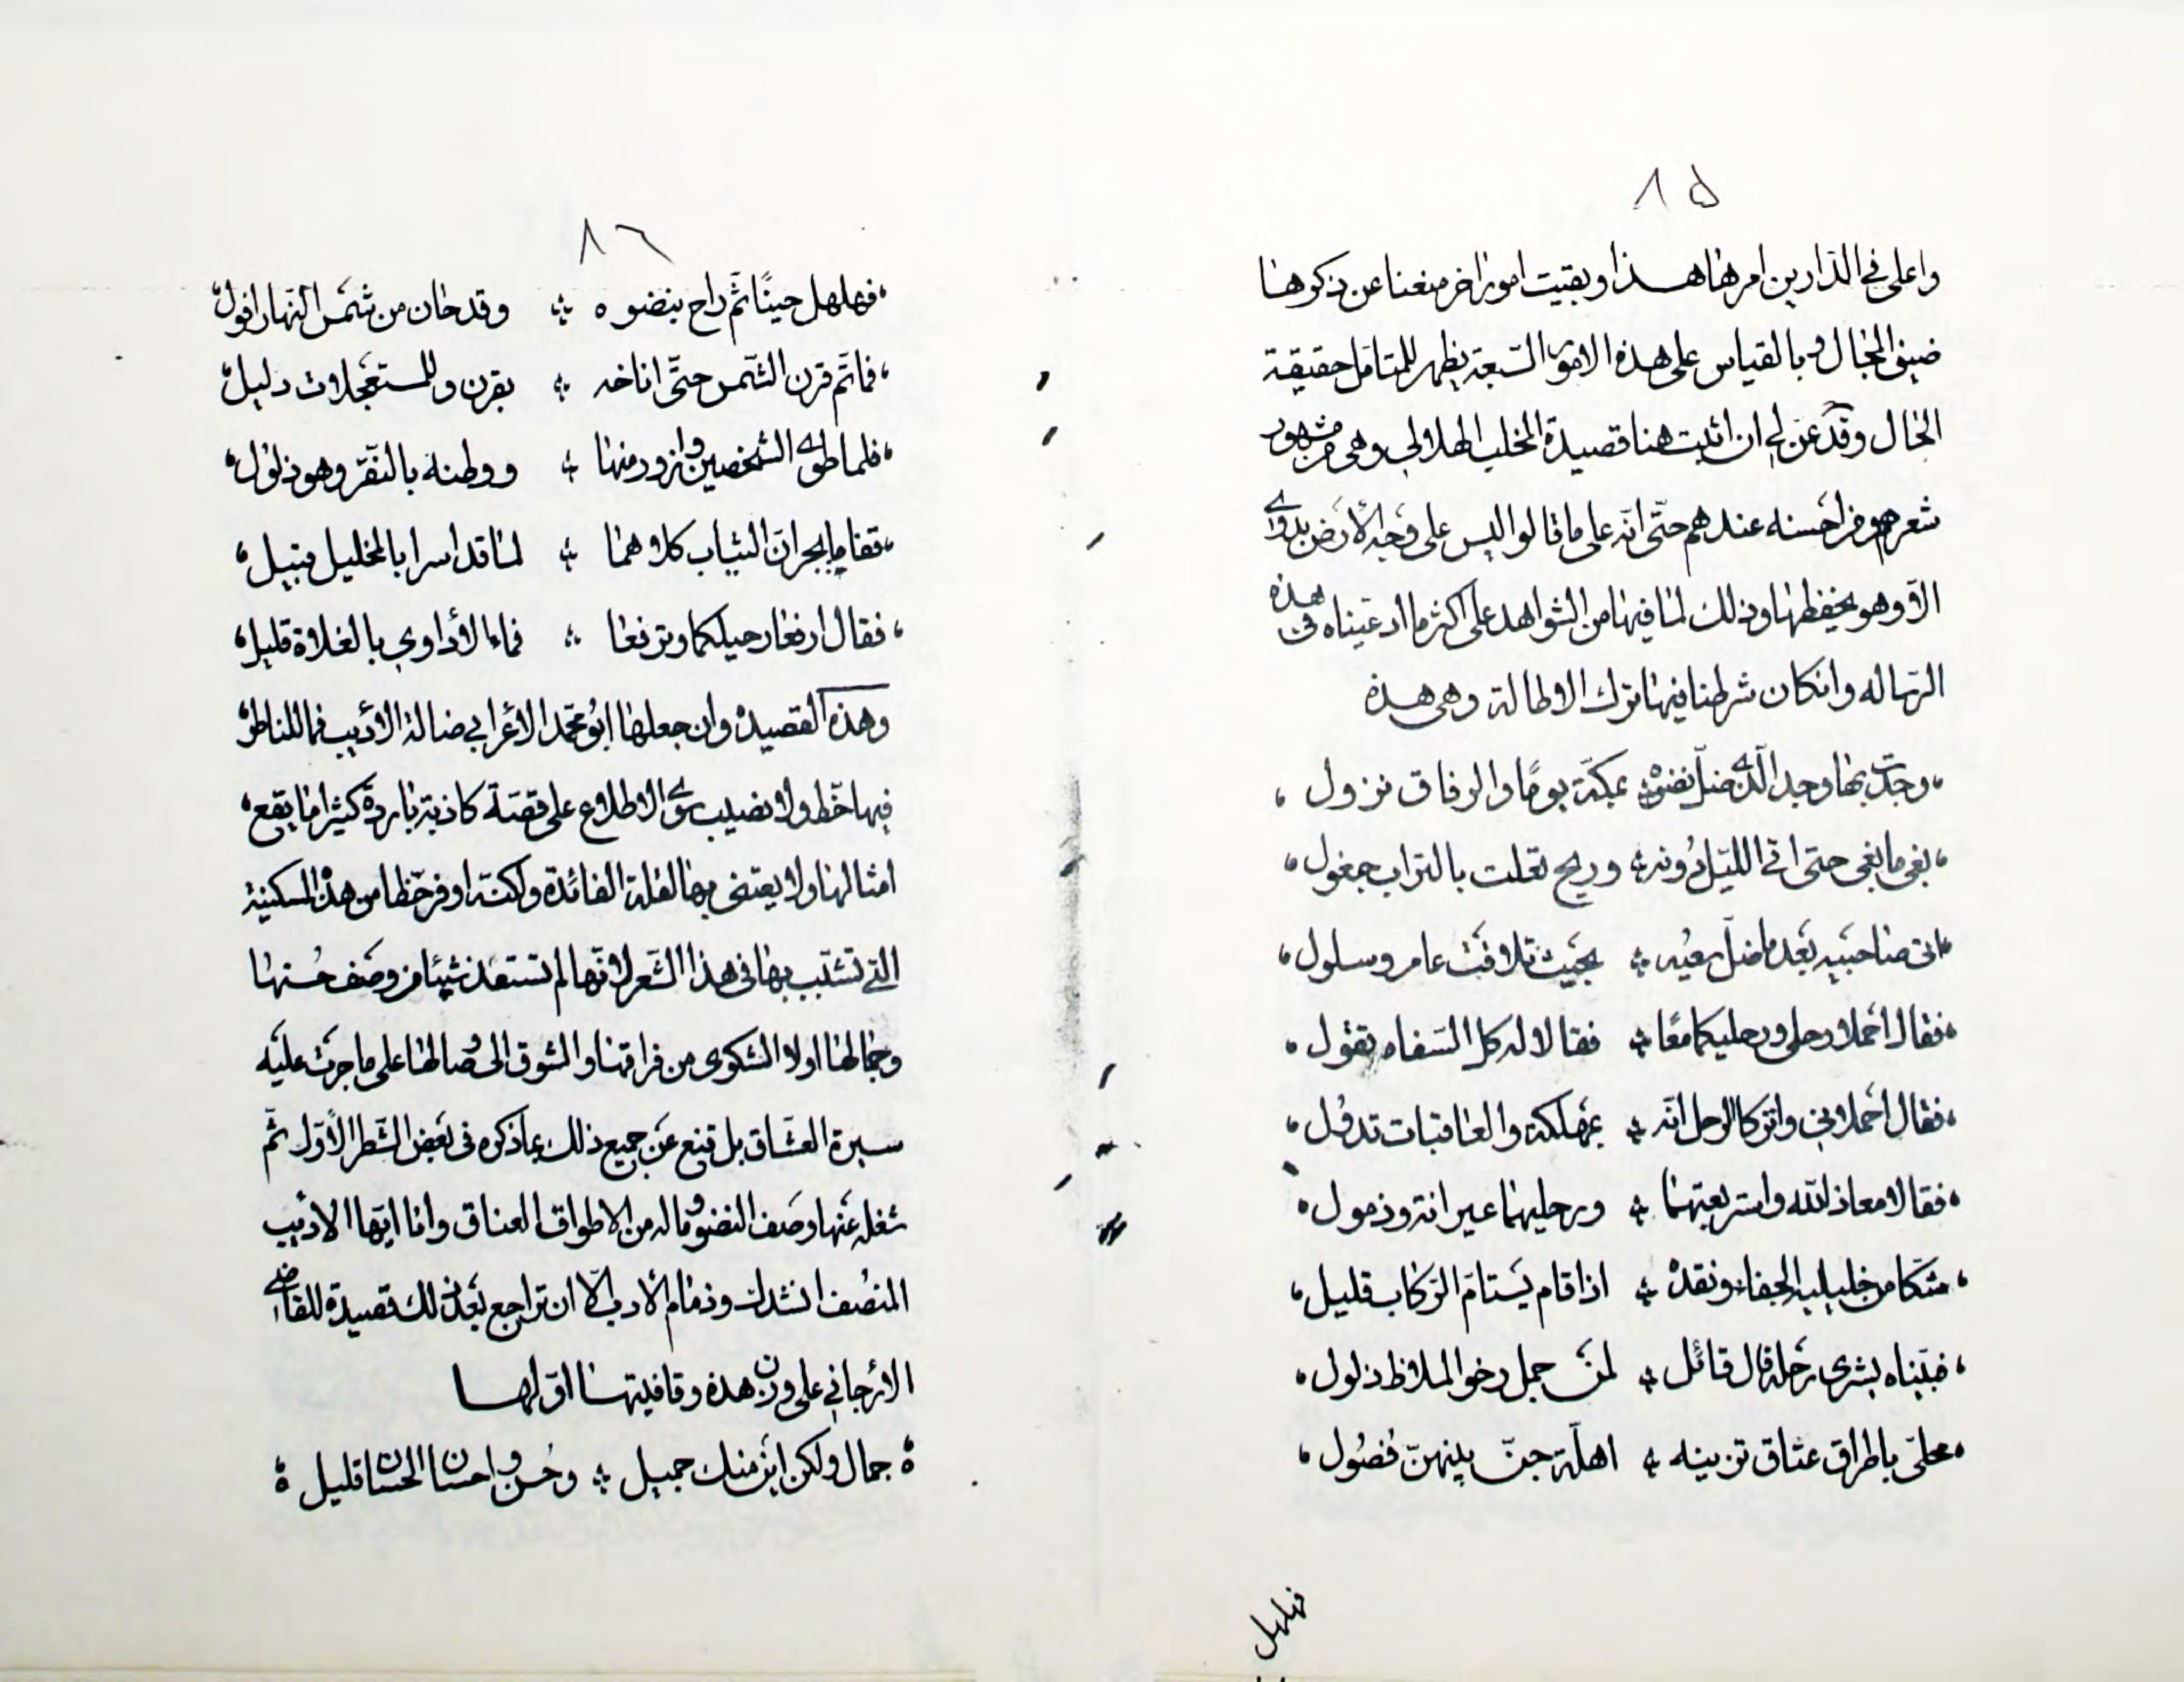 ٨٥
واعلى في الدارين امرها هذا وبقيت امورا اخر منعنا عن ذكرها
ضيق المجال وبالقياس على هذه الامور السّبعة يظهر للمتامّل حقيقة
الحال وقد عنّ لي ان اثبت هنا قصيدة المخلب الهلالي وهي من مشهور
شعرهم ومن احسنه عندهم حتّى انّه على ما قالوا ليس على وجه الأرض بدوي
الّا وهو يحفظها وذلك لما فيها من الشواهد على اكثر ما ادعيناه في هذه
الرساله وانكان شرطنا فيها ترك الاطالة وهي هذه
وجدت بها وجد الّذي ضلّ نضوه ؞ بمكّة يومًا والرفاق نزول
بغى ما بغى حتى اتى الليل دونه ؞ وريح تعلت بالتراب جفول
اتى صاحبيه بعد ما ضلّ سعيه ؞ بحيث تلاقت عامر وسلول
فقال احملا رحلي ورحليكما معًا ؞ فقالا له كل السّفاه تقول
فقال احملاني واتركا الرحل انّه ؞ بمهلكة والعاقبات تدول
فقالا معاذ الله واستربعتهما ؞ ورحليهما عيرانة وذمول
شكا من خليليه الجفاء ونقده ؞ اذا قام يستام الركاب قليل
فبيناه يشرى رحله قال قائل ؞ لمن جمل رخو الملاط ذلول
محلّى باطواق عتاق تزينه ؞ اهلّة جنّ بينهنّ فصول
فهلهل
٨٦
فهلهل حينًا ثمّ راح بنضوه ؞ وقد حان من شمس النّهار افول
فما تم قرن الشّمس حتّى اناخه ؞ بقرن وللمستعجلات دليل
فلما طوى الشخصين وازور منها ؞ ووطنه بالنّقر وهو ذلول
فقاما يجران الثياب كلاهما ؞ لما قد اسرا بالخليل قبيل
فقال ارفعا رحليكما وترفعا ؞ فماء الأداوي بالفلاة قليل
وهذه القصيدة وان جعلها ابو محمّد الأعرابي ضالة الأديب فما للناظر
فيها حّظ ولا نصيب سوى الاطلاع على قصّة كاذبة باردة كثيرا ما يقع
امثالها ولا يعتنى بها لقلة الفائدة ولكنّه اوفر حّظا من هذه المسكينة
التي تشبّب بها في هذا الشّعر لانّها لم تستفد شيئا من وصف حسنها
وجمالها اولا الشكوى من فراقها والشوق الى وصالها على ما جرت عليه
سيرة العشّاق بل قنع عن جميع ذلك بما ذكره في بعض الشّطر الأوّل ثمّ
شغله عنها وصف النضو وماله من الاطواق العتاق وانا ايّها الاديب
المنصف انشدك وذمام الأدب الّا ان تراجع بعد ذلك قصيدة للقاضي
الارجاني على وزن هذه وقافيتها اوّلها
جمال ولكن اين منك جميل ؞ وحسن واحسان الحسان قليل